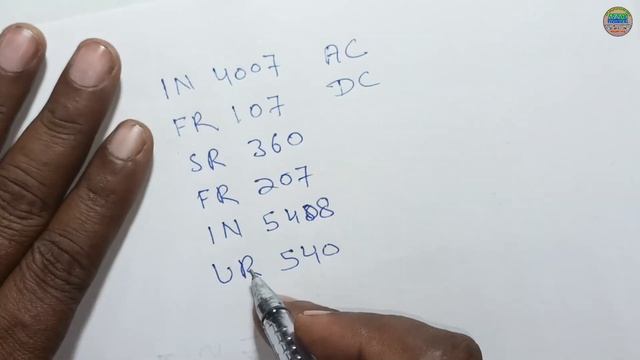 IN 4007 AC
DC
FR 107
SR 360
FR 207
IN 5408
UR 540